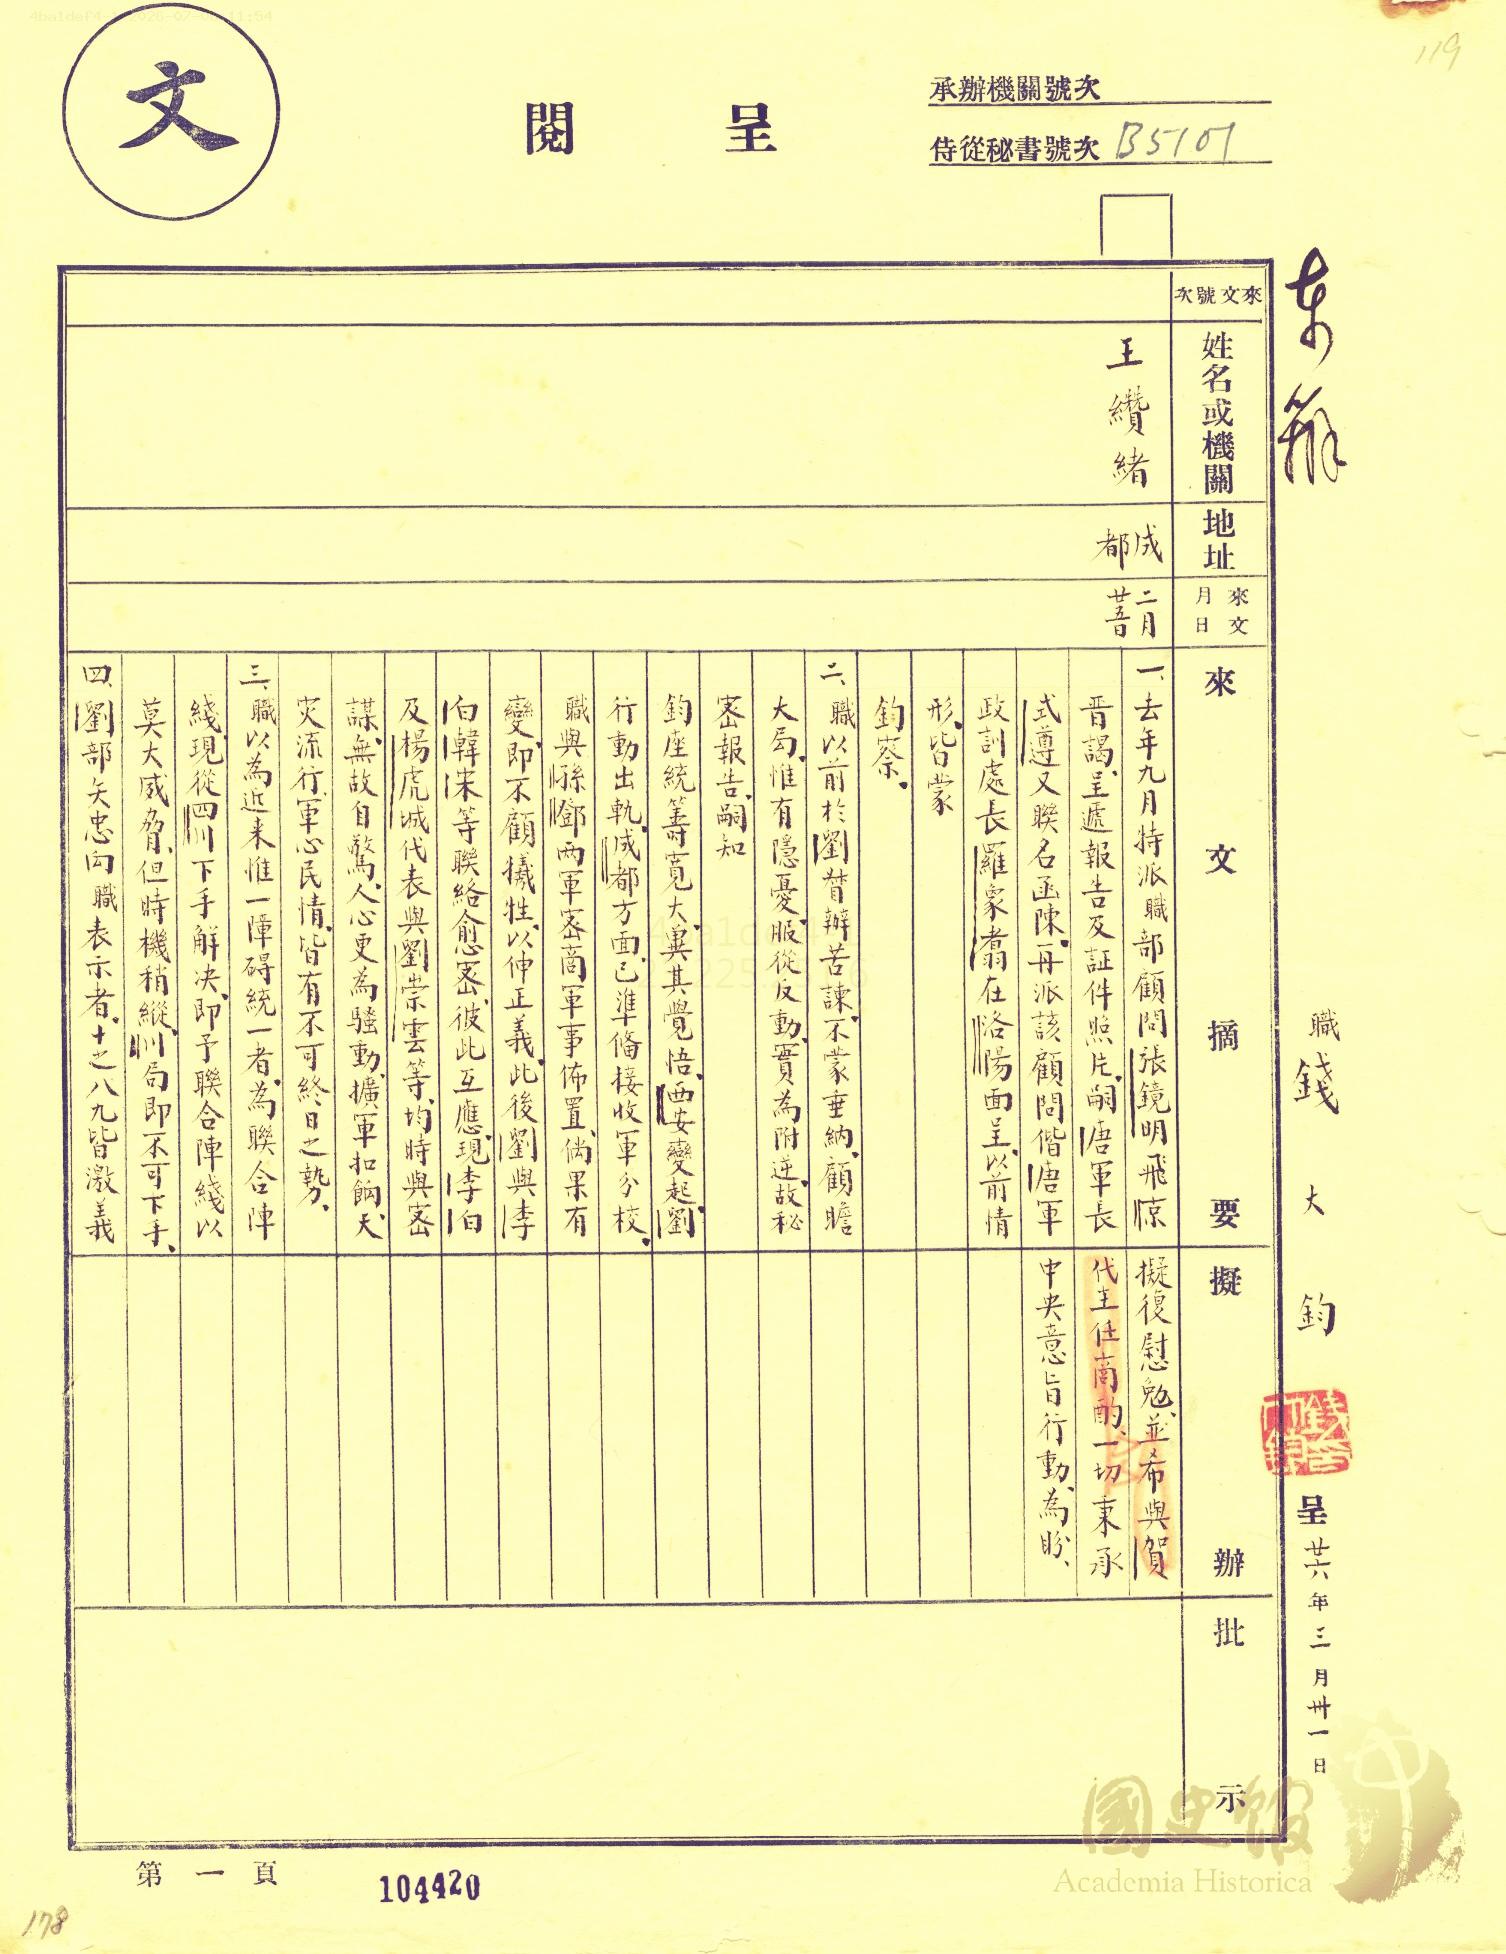 119
承辦機關號次
侍從秘書號次 B5101
呈閱
文
職錢大鈞
呈
廿六年三月卅一日
來文號次
姓名或機關
地址
來文月日
來文摘要
擬辦
批示
王纘緒
成都
二月
廿五日
一、去年九月特派職部顧問張鏡明飛京
晋謁、呈遞報告及証件照片、嗣唐軍長
式遵又聯名函陳、再派該顧問偕唐軍
政訓處長羅象翥在洛陽面呈、以前情
形、皆蒙
鈞察、
二、職以前於劉督辦苦諫、不蒙垂納、顧瞻
大局、惟有隱憂、服從反動、實為附逆、故秘
密報告、嗣知
鈞座統籌寬大、冀其覺悟、西安變起、劉
行動出軌、成都方面、已準備接收軍分校、
職與孫鄧兩軍密商軍事佈置、倘果有
變、即不顧犧牲、以伸正義、此後劉與李
白韓宋等聯絡愈密、彼此互應、現李白
及楊虎城代表與劉崇雲等、均時與密
謀、無故自驚、人心更為騷動、擴軍扣餉、天
灾流行、軍心民情、皆有不可終日之勢、
三、職以為近来惟一障碍統一者、為聯合陣
綫、現從四川下手解决、即予聯合陣綫以
莫大威脅、但時機稍縱、川局即不可下手、
四、劉部矢忠向職表示者、十之八九皆激義
擬復慰勉、並希與賀
代主任商酌、一切秉承
中央意旨行動、為盼、
第一頁
104420
178
國史館
Academia Historica